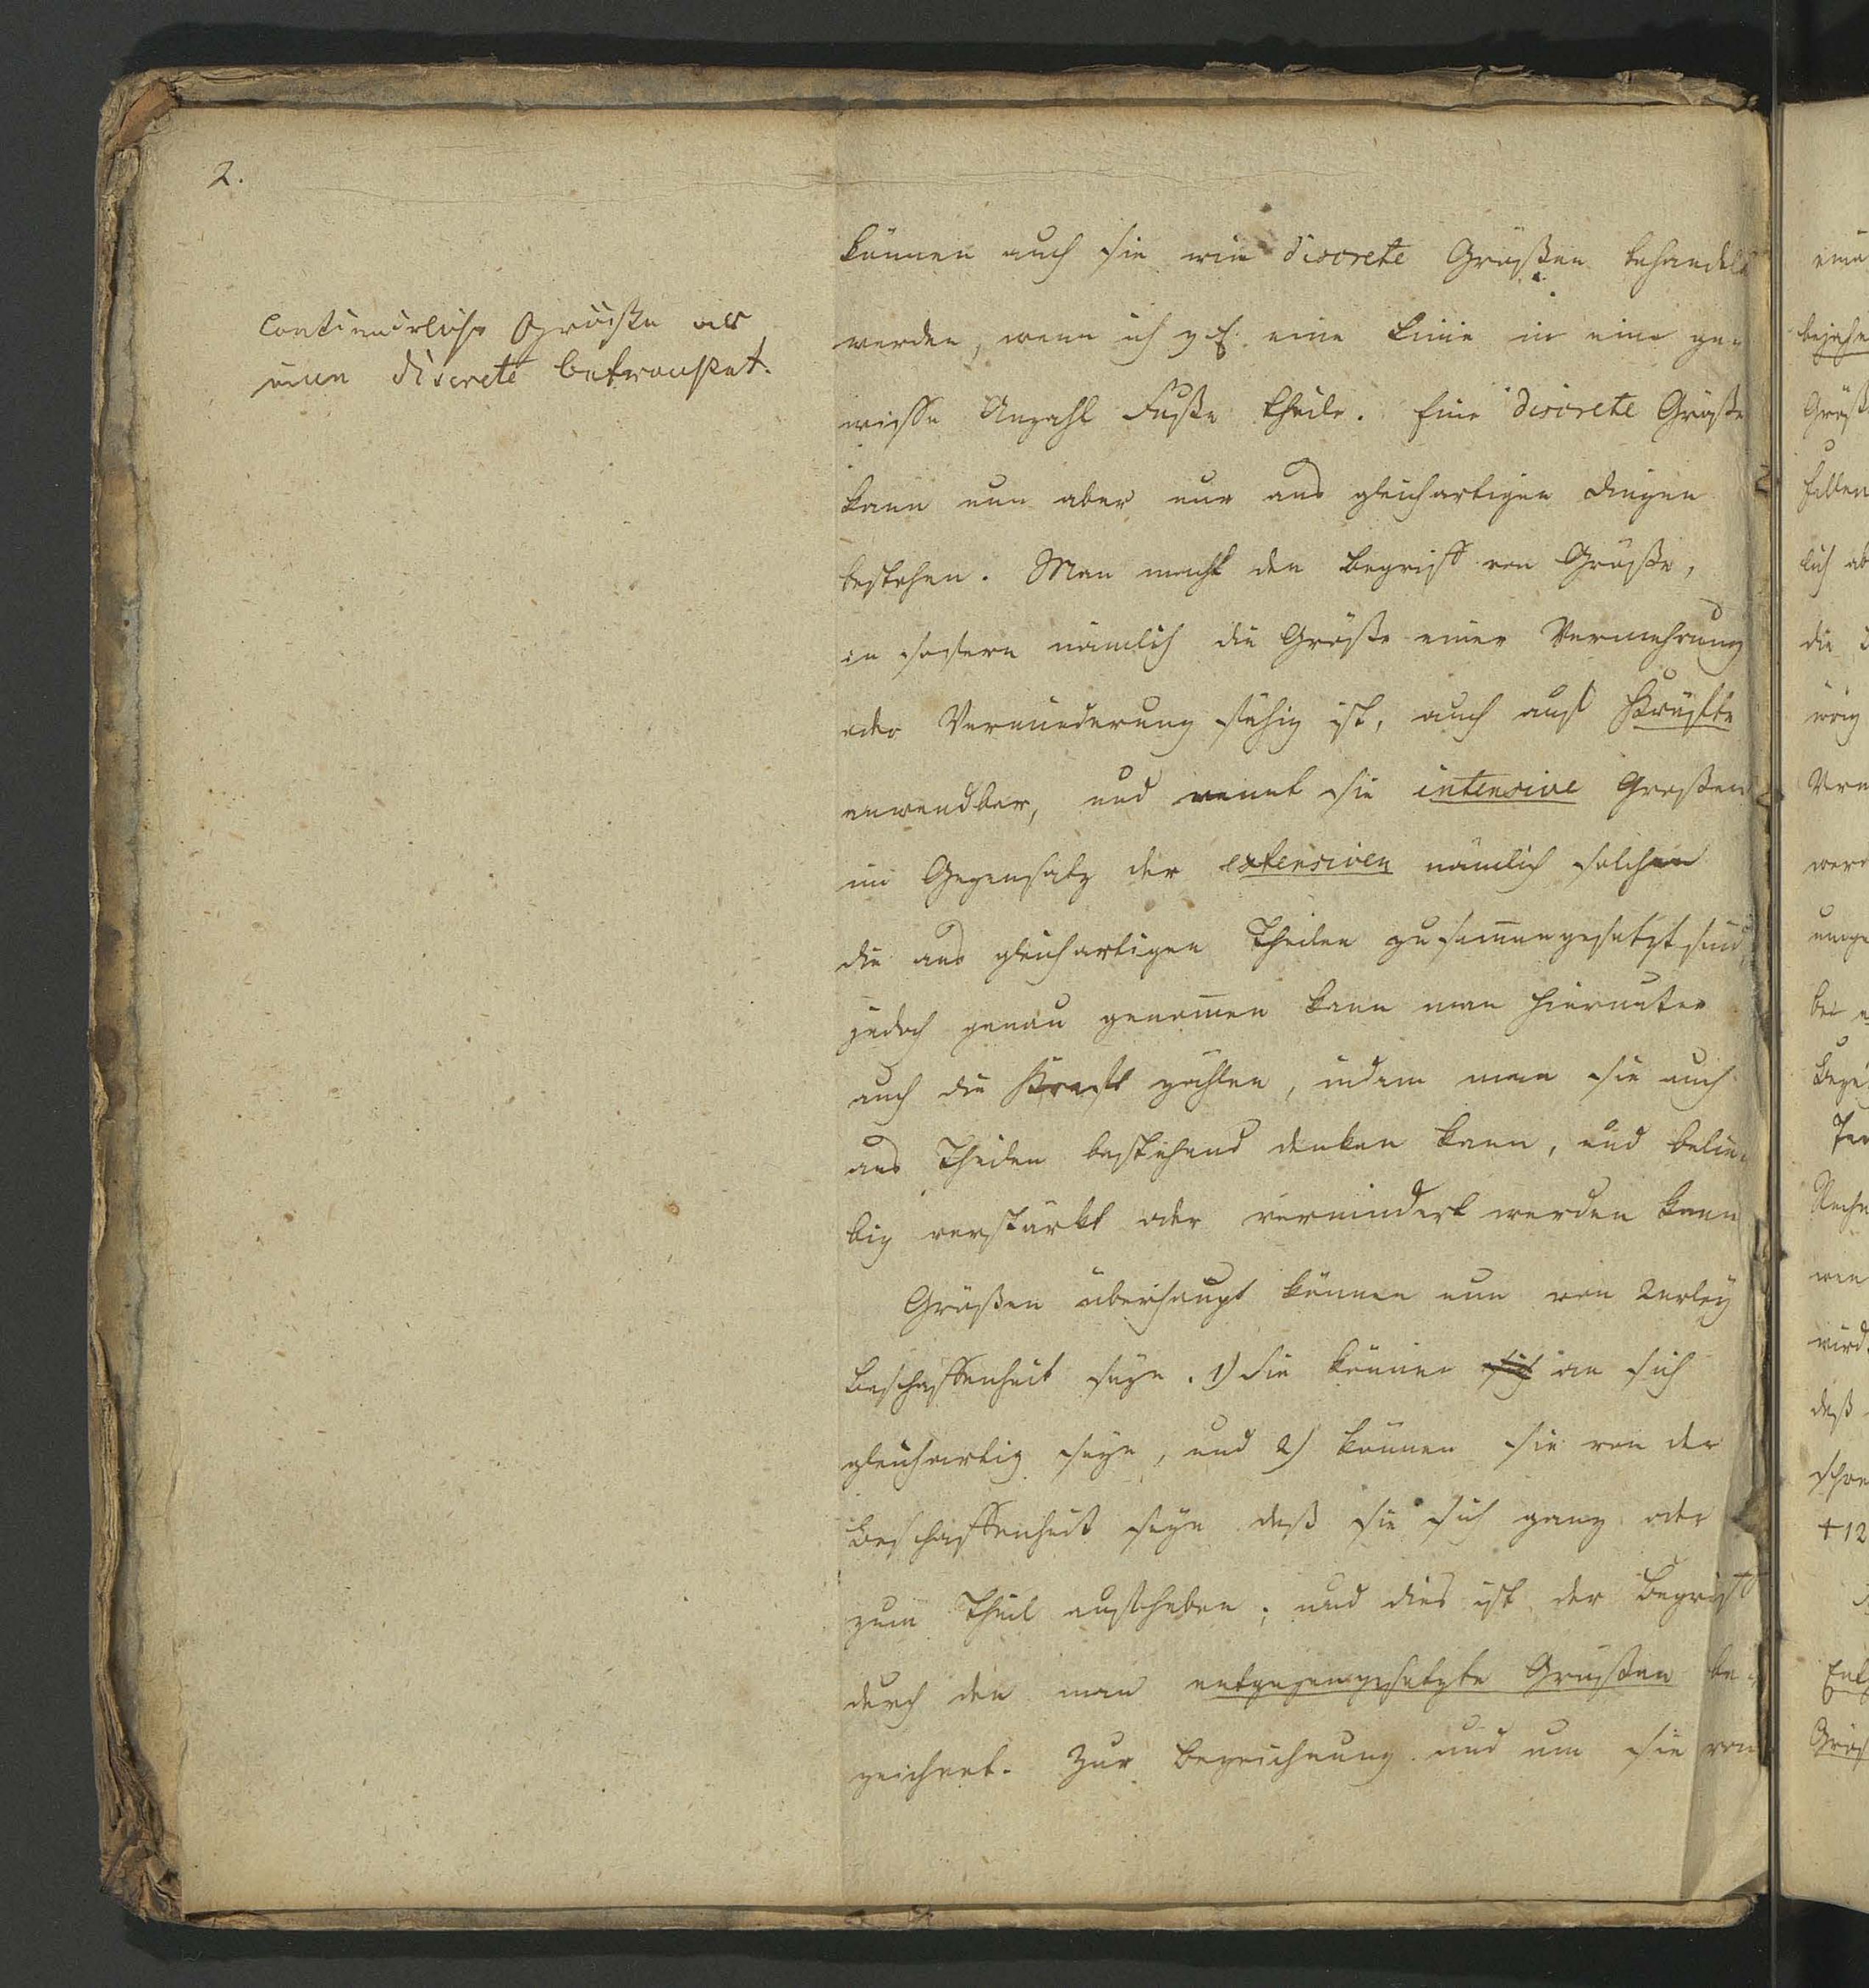 2.
Continuirliche Größen als
eine discrete betrachtet.
können auch sie wie discrete Größen behandelt
werden, wenn ich z.E. eine Linie in eine ge-
wisse Anzahl Fuße theile. Eine discrete Größe
kann nun aber nur aus gleichartigen Dingen
bestehen. Man macht den Begriff von Größe,
in sofern nämlich die Größe einer Vermehrung
oder Verminderung fähig ist, auch auf Kräfte
anwendbar, und nennt sie intensive Großen
im Gegensatz der extensiven nämlich solchen
die aus gleichartigen Theilen zusam̅engesetzt sind,
jedoch genau genom̅en kann man hierunter
auch die Kraft zählen, indem man sie auch
aus Theilen bestehend denken kann, und belie-
big verstärkt oder vermindert werden kann
Größen überhaupt können nun von 2erley
Beschaffenheit seyn. 1) Sie können sich an sich
gleichartig seyn, und 2) können sie von der
Beschaffenheit seyn daß sie sich ganz oder
zum Theil aufheben; und dies ist der Begriff
durch den man entgegengesetzte Größen be-
zeichnet. Zur Bezeichnung und um sie von
eine
bejahe
Größ
fallen
lich ab
die
Bei
+12
daß
wird
Ent
Größ